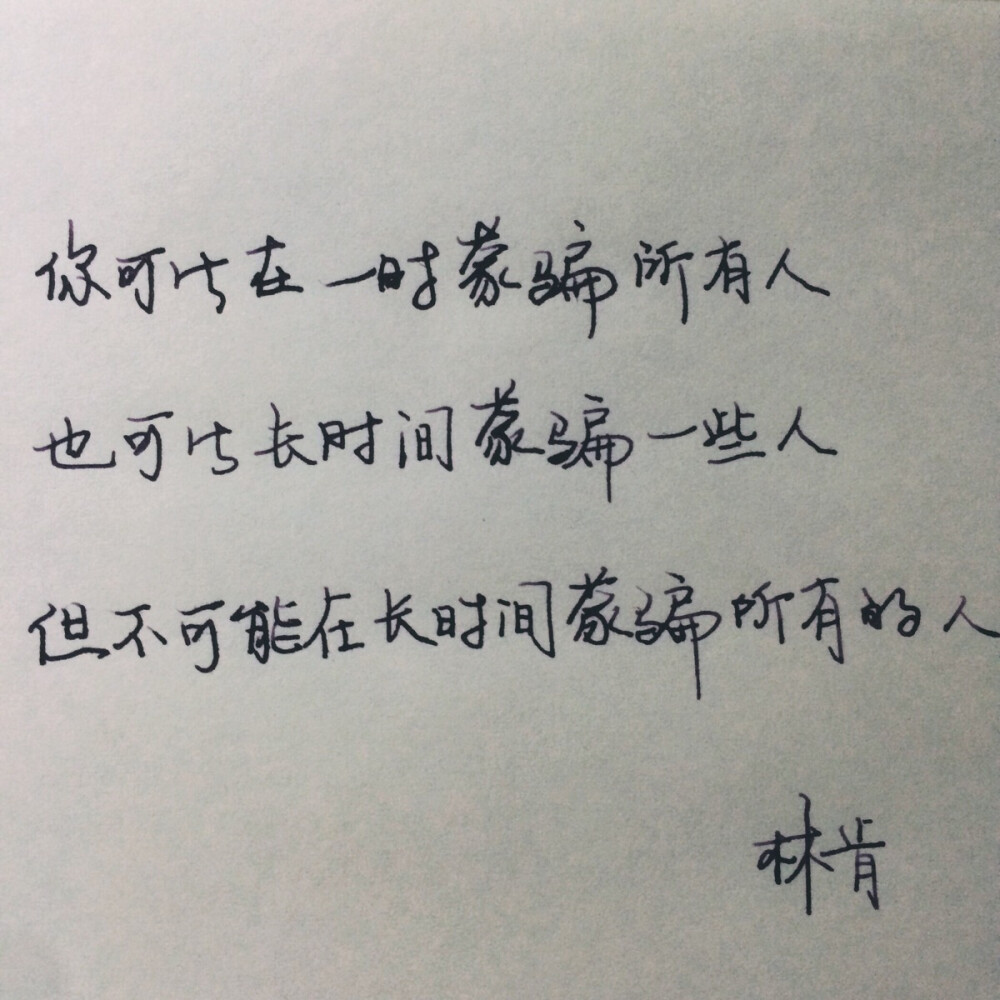 你可以在一时蒙骗所有人
也可以长时间蒙骗一些人
但不可能在长时间蒙骗所有的人
林肯